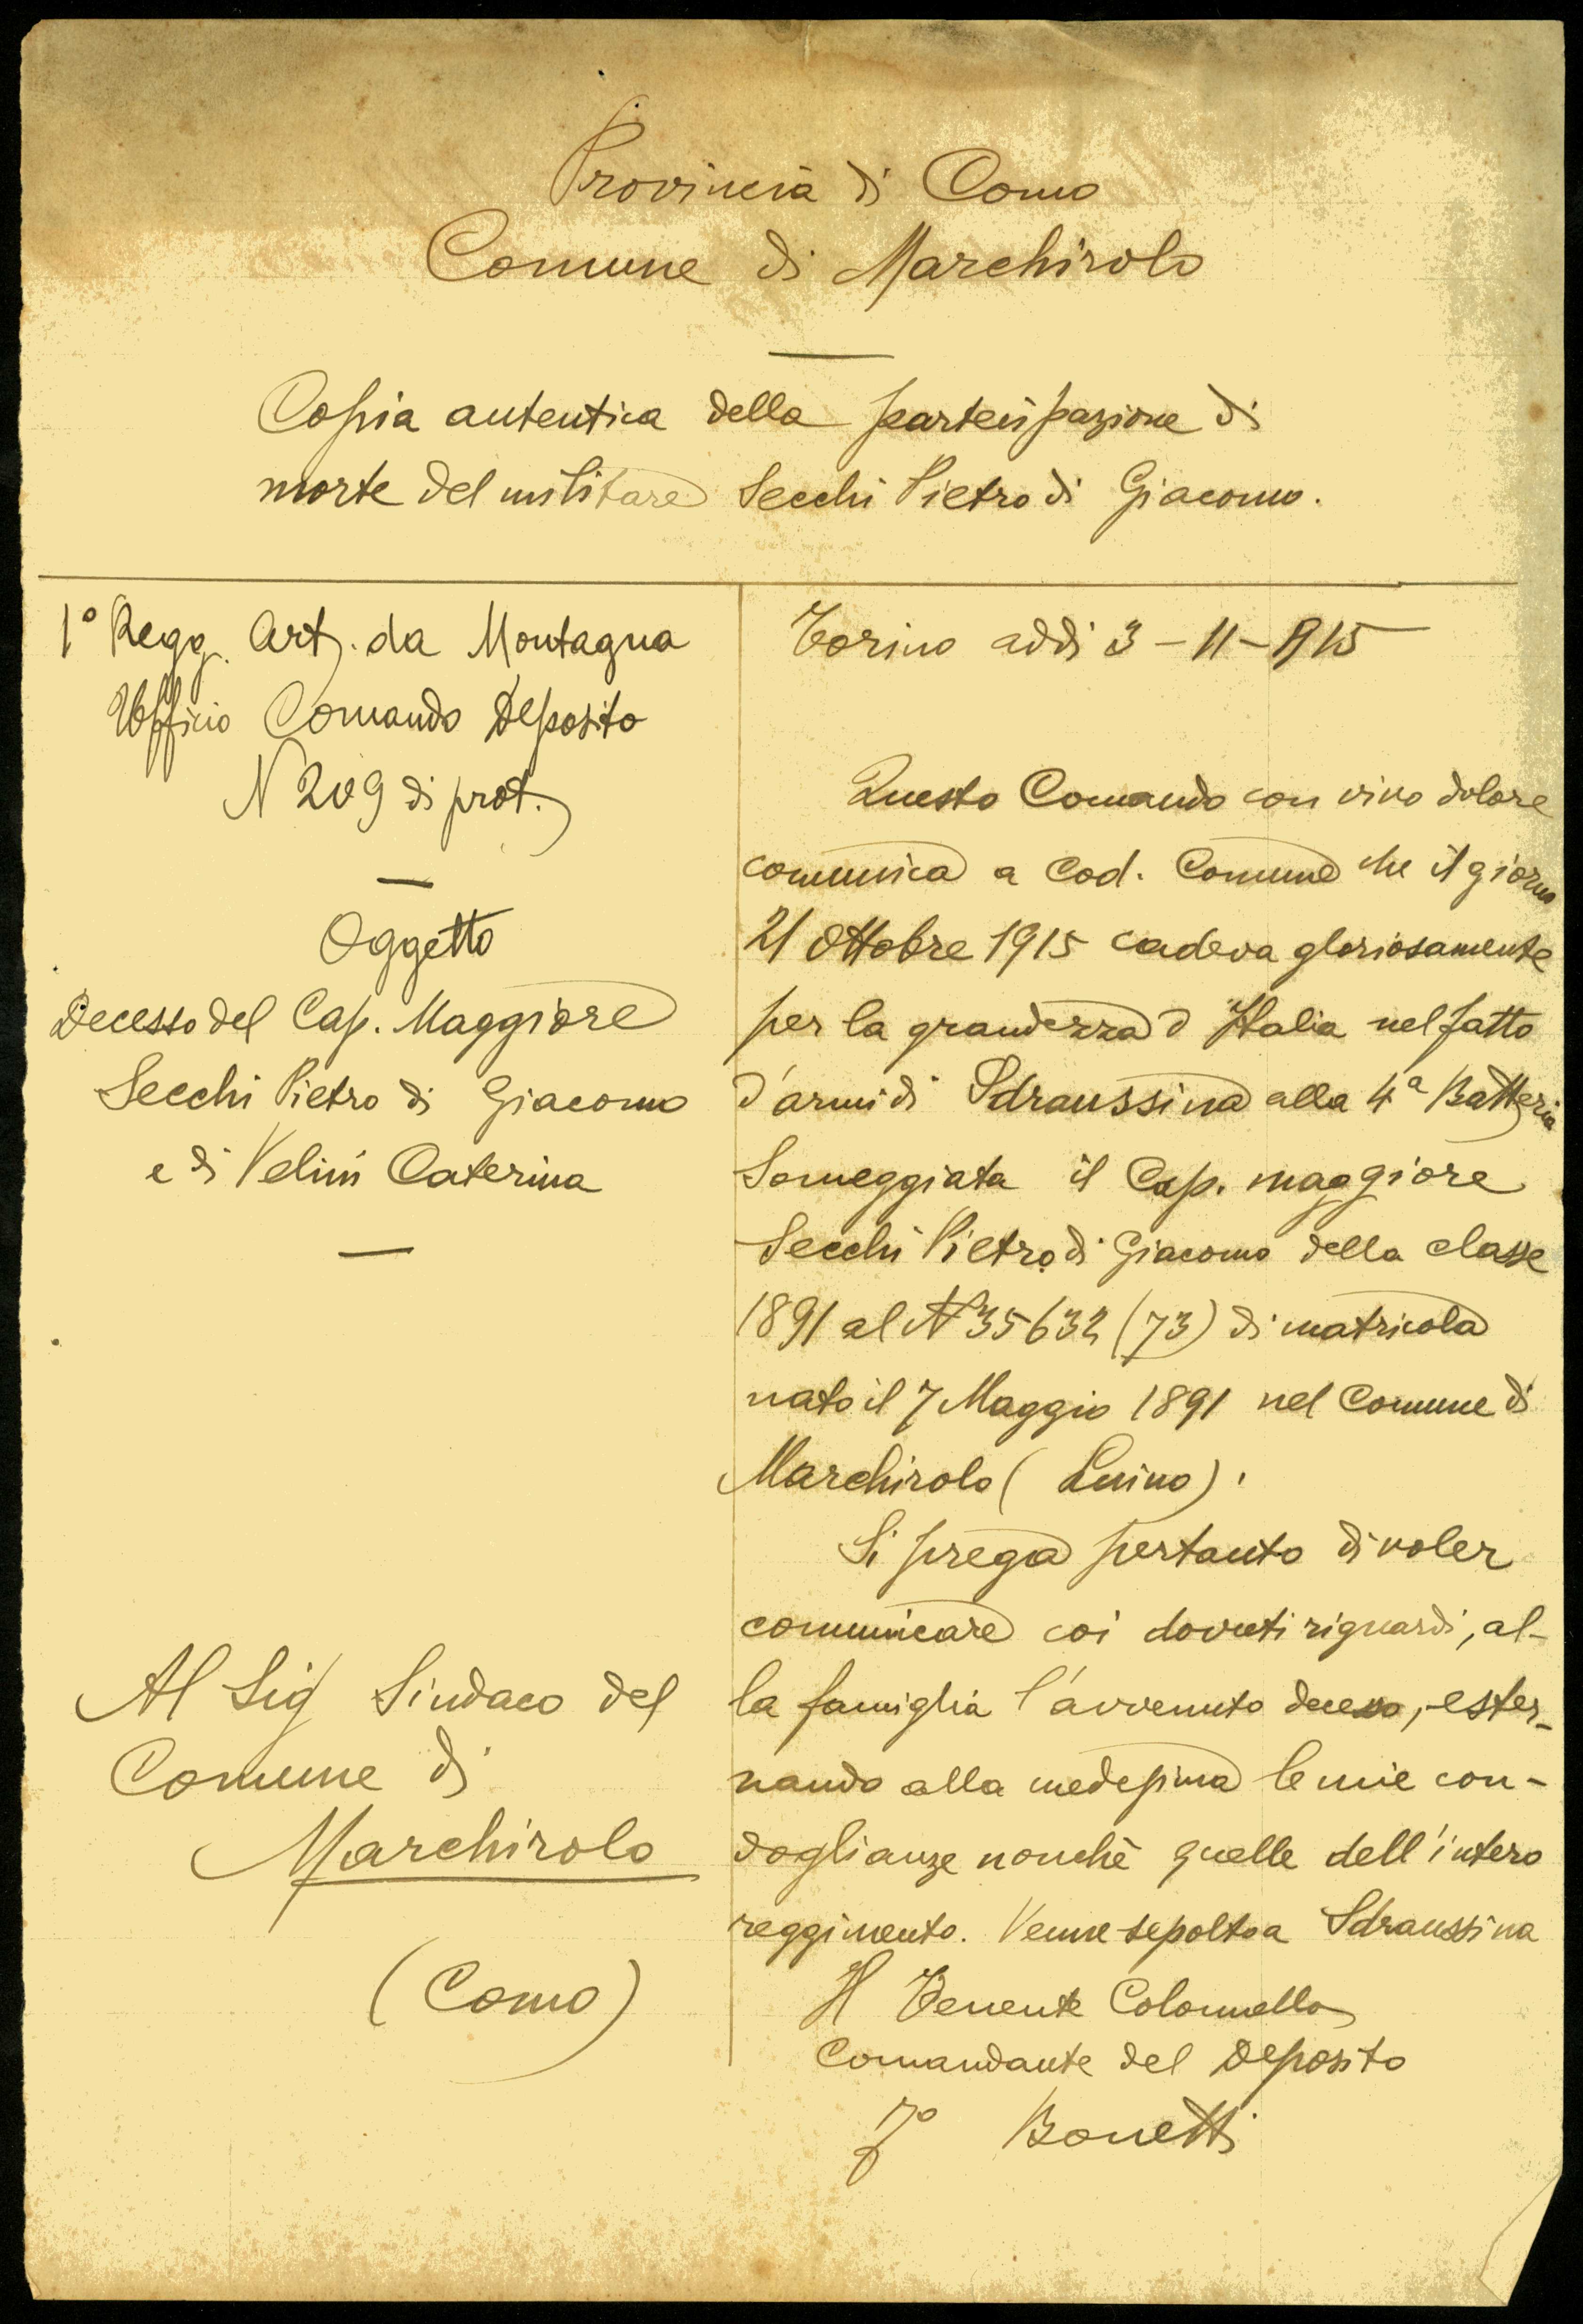 Provincia di Como
Comune di Marchirolo
Copia autentica della partecipazione di
morte del militare Secchi Pietro di Giacomo.
1° Regg. Art. da Montagna
Ufficio Comando Deposito
N 209 di prot.
Oggetto
Decesso del Cap. Maggiore
Secchi Pietro di Giacomo
e di Velini Caterina
Al Sig Sindaco del
Comune di
Marchirolo
(Como)
Torino addi 3-11-915
Questo Comando con vivo dolore
comunica a Cod. Comune che il giorno
21 Ottobre 1915 cadeva gloriosamente
per la grandezza d'Italia nel fatto
d'armi di Sdraussina alla 4ª Batteria
Someggiata il Cap. maggiore
Secchi Pietro di Giacomo della classe
1891 al N° 35632 (73) di matricola
nato il 7 Maggio 1891 nel Comune di
Marchirolo (Luino).
Si prega pertanto di voler
comunicare coi dovuti riguardi, al-
la famiglia l'avvenuto decesso, ester-
nando alla medesima le mie con-
doglianze nonchè quelle dell'intero
reggimento. Venne sepolto a Sdraussina
Il Tenente Colonnello
Comandante del Deposito
F° Bonetti